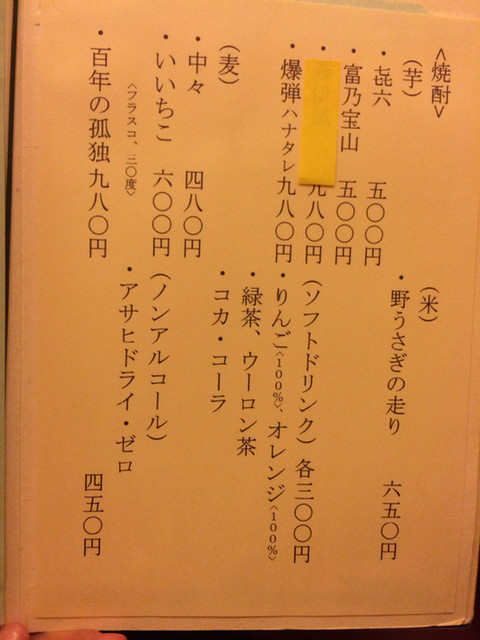 <焼酎>
(芋)
・㐂六 五〇〇円
・富乃宝山 五〇〇円
・ 九八〇円
・爆弾ハナタレ 九八〇円
(麦)
・中々 四八〇円
・いいちこ 六〇〇円
<フラスコ、三〇度>
・百年の孤独 九八〇円
(米)
・野うさぎの走り 六五〇円
(ソフトドリンク) 各三〇〇円
・りんご<100%>、オレンジ<100%>
・緑茶、ウーロン茶
・コカ・コーラ
(ノンアルコール)
・アサヒドライ・ゼロ
四五〇円